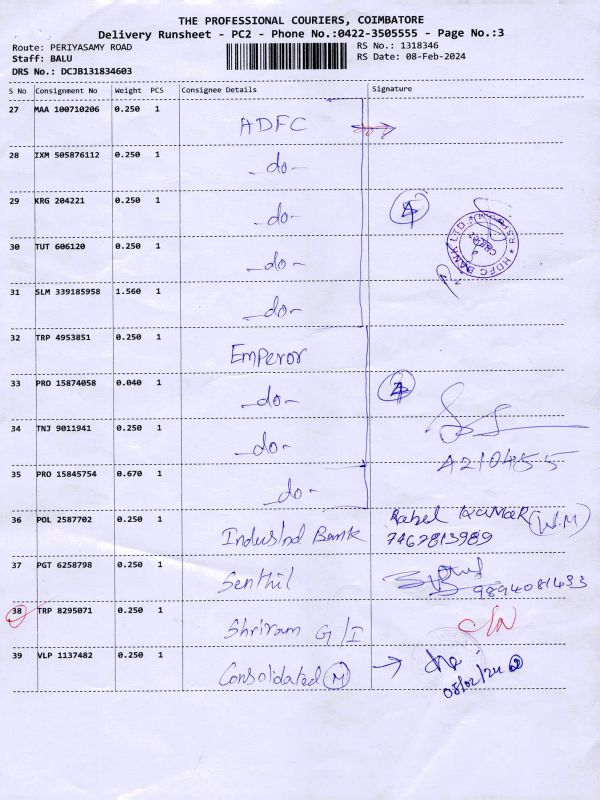 THE PROFESSIONAL COURIERS, COIMBATORE
Delivery Runsheet - PC2 - Phone No.:0422-3505555 - Page No.:3
Route: PERIYASAMY ROAD RS No.: 1318346
Staff: BALU RS Date: 08-Feb-2024
DRS No.: DCJB131834603
S No Consignment No Weight PCS Consignee Details Signature
27 MAA 100710206 0.250 1 ADFC
28 IXM 505876112 0.250 1 -do-
29 KRG 204221 0.250 1 -do- 4
HDFC BANK LTD
30 TUT 606120 0.250 1 -do-
31 SLM 339185958 1.560 1 -do-
32 TRP 4953851 0.250 1 Emperor
33 PRO 15874058 0.040 1 -do- 4
34 TNJ 9011941 0.250 1 -do-
A210455
35 PRO 15845754 0.670 1 -do-
36 POL 2587702 0.250 1 IndusInd Bank KUMAR (W.M)
7467813989
37 PGT 6258798 0.250 1 Senthil
9894081433
38 TRP 8295071 0.250 1 Shriram G/I
39 VLP 1137482 0.250 1 Consolidated (M) →
08/02/24